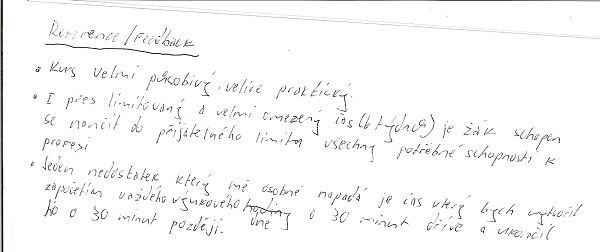 Reference/Feedback
• Kurs velmi působivý, velice praktický.
• I přes limitovaný a velmi omezený čas (6 týdnů) je žák schopen
se naučit do přijatelného limitu všechny potřebné schopnosti k
profesi
• Jeden nedostatek který mě osobně napadá je čas který bych vytvořil
započetím každého výukového dne o 30 minut dříve a ukončil
ho o 30 minut později.